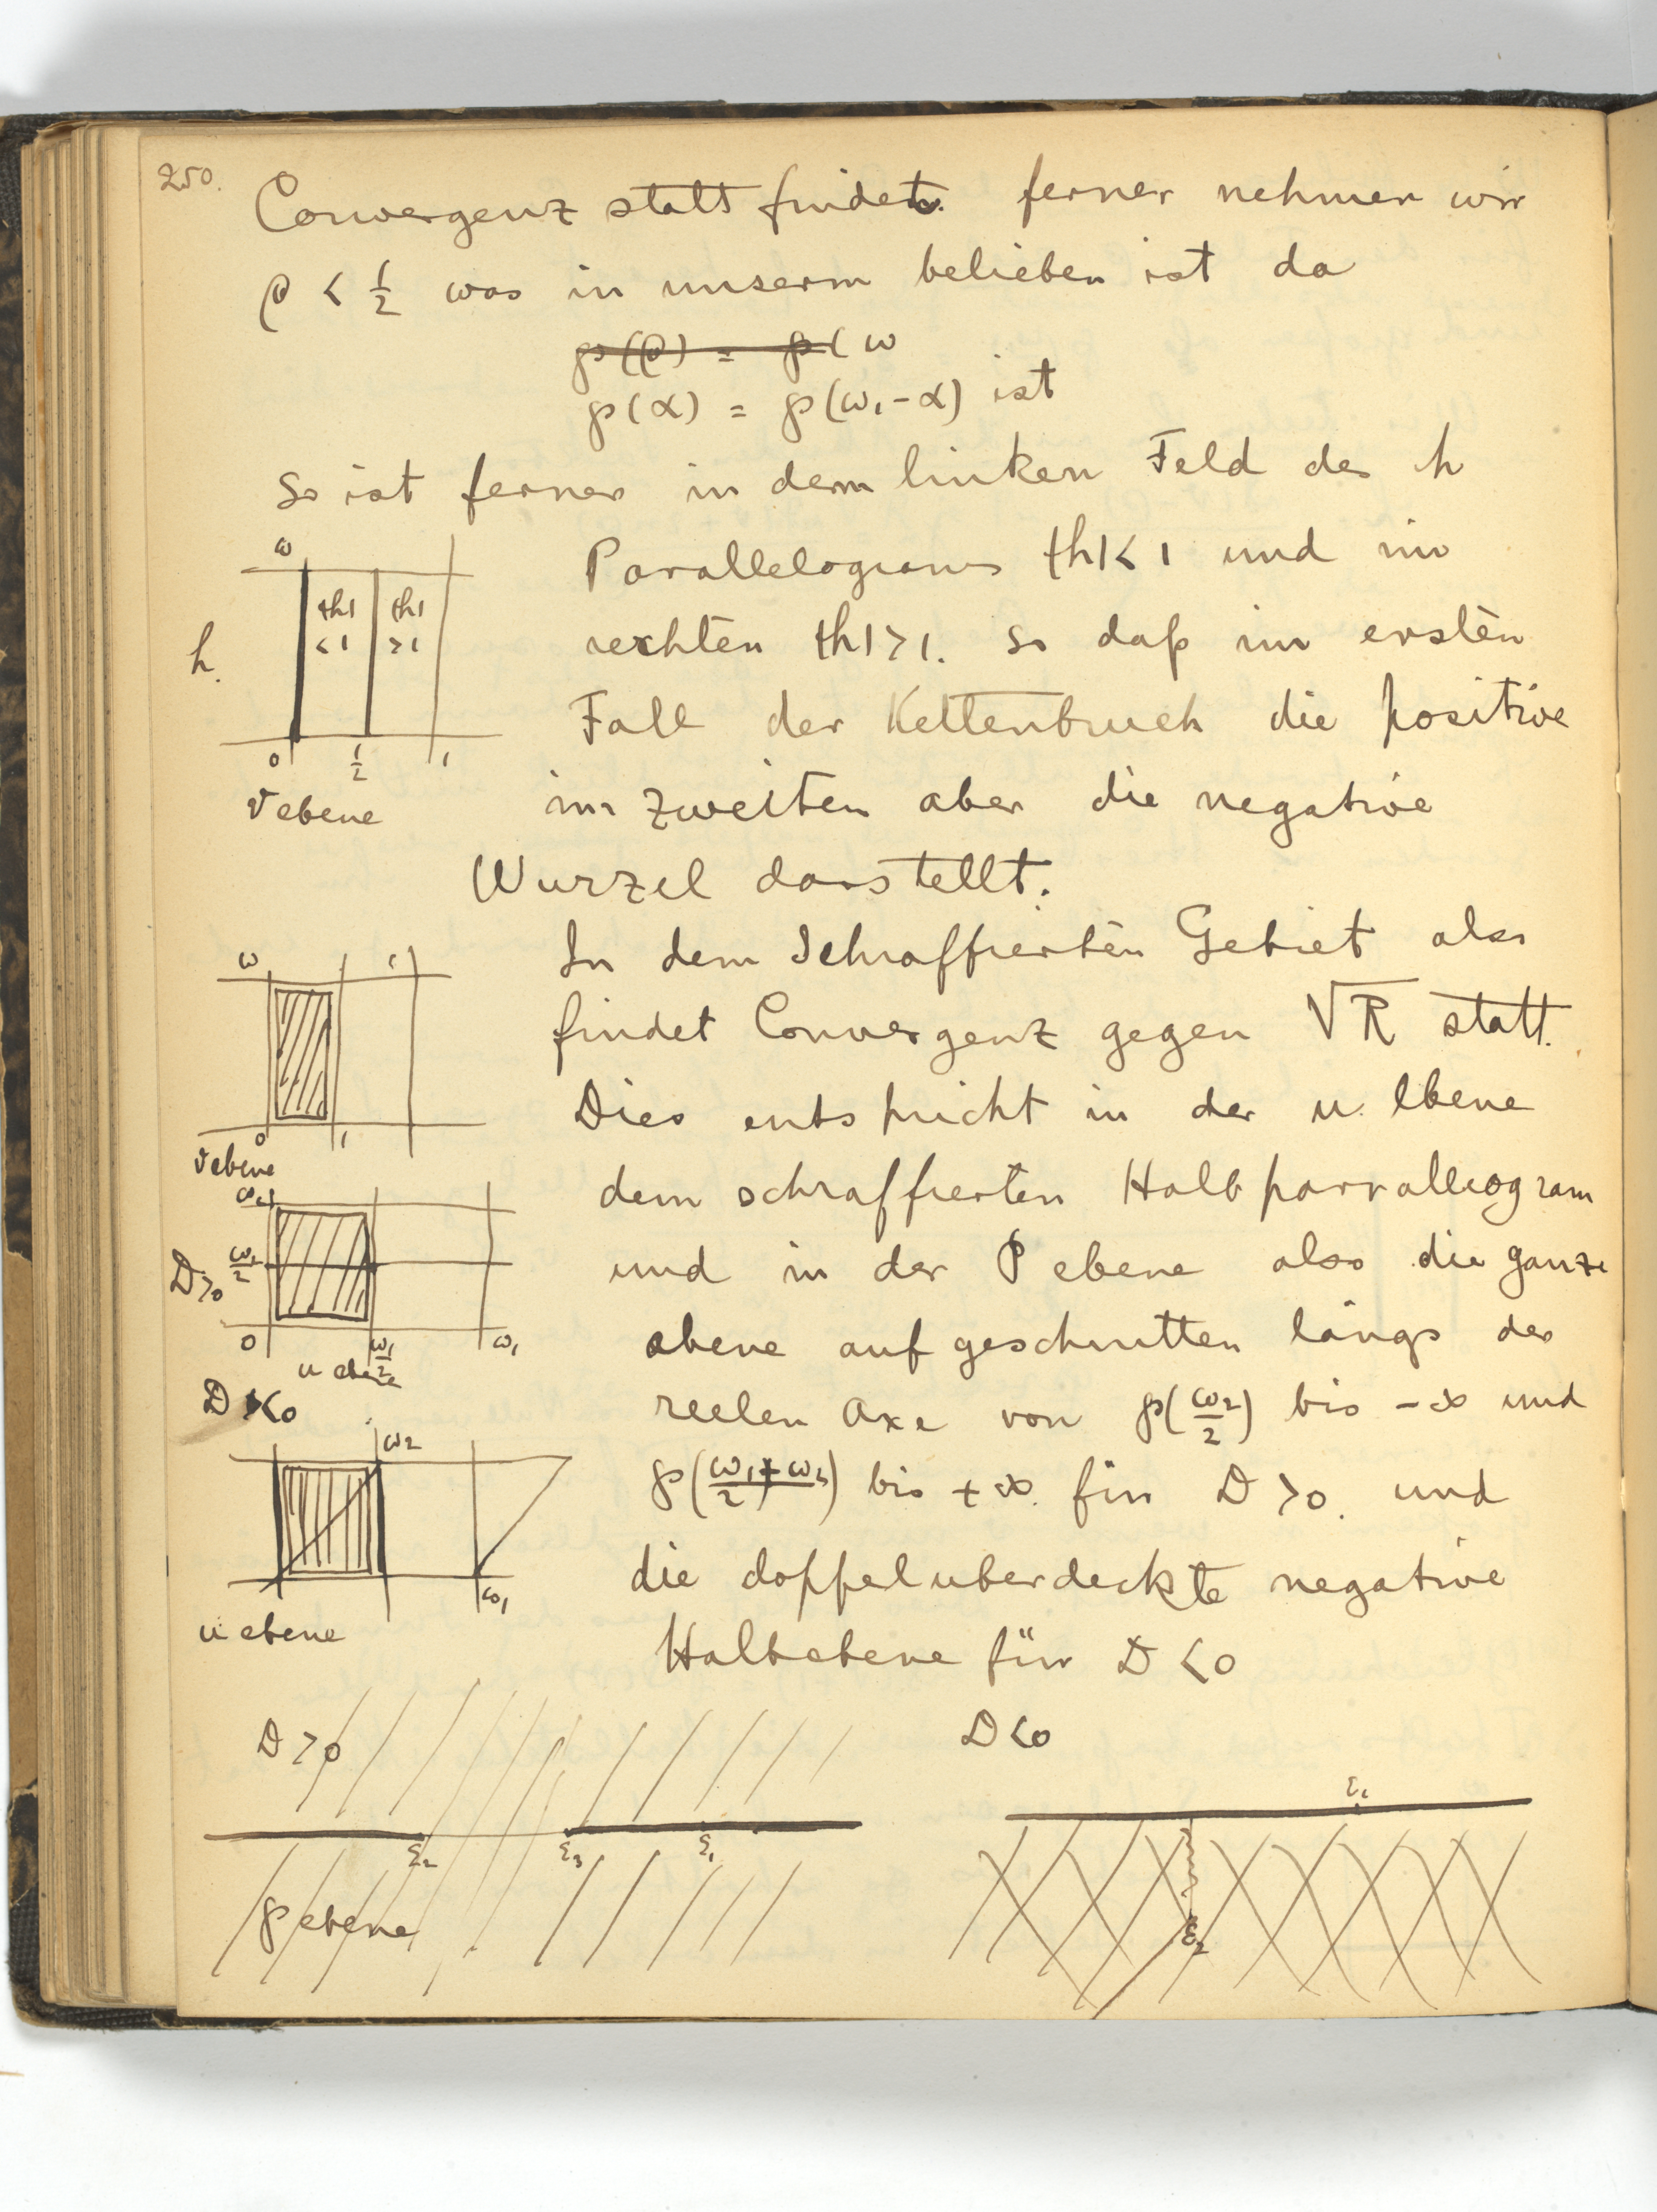 250.
Convergenz statt findet. ferner nehmen wir
ρ < 1/2 was in unserm belieben ist da
℘(ρ) = ℘(ω
℘(α) = ℘(ω₁-α) ist
so ist ferner in dem linken Feld des h
Parallelograms |h|< 1 und im
rechten |h|>1. so daß im ersten
Fall der Kettenbruch die positive
im zweiten aber die negative
Wurzel darstellt.
ω
|h| <1
|h| >1
h.
0 1/2 1
v ebene
In dem Schraffierten Gebiet also
findet Convergenz gegen √R statt.
Dies entspricht in der u. Ebene
dem schraffierten Halbparralleogram
und in der P ebene also die ganze
ebene aufgeschnitten längs der
reelen Axe von ℘(ω₂/2) bis -∞ und
℘((ω₁+ω₂)/2) bis +∞. für D >0. und
die doppeluberdeckte negative
Halbebene für D <0
ω
0 1
v ebene
ω₂
ω₁/2
D>0
0 ω₁/2 ω₁
u ebene
D <0
ω₂
ω₁
u ebene
D >0
ε₂ ε₃ ε₁
℘ ebene
D <0
ε₁
ε₂